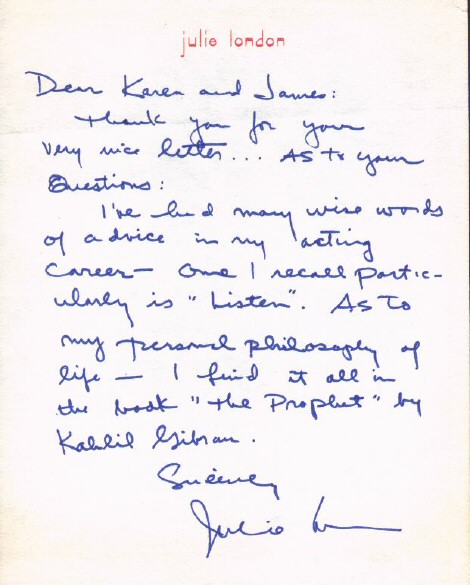 julie london
Dear Karen and James:
Thank you for your
very nice letter... As to your
Questions:
I've had many wise words
of advice in my acting
career— One I recall partic-
ularly is "Listen". As to
my personal philosophy of
life — I find it all in
the book "The Prophet" by
Kahlil Gibran.
Sincerely
Julie London